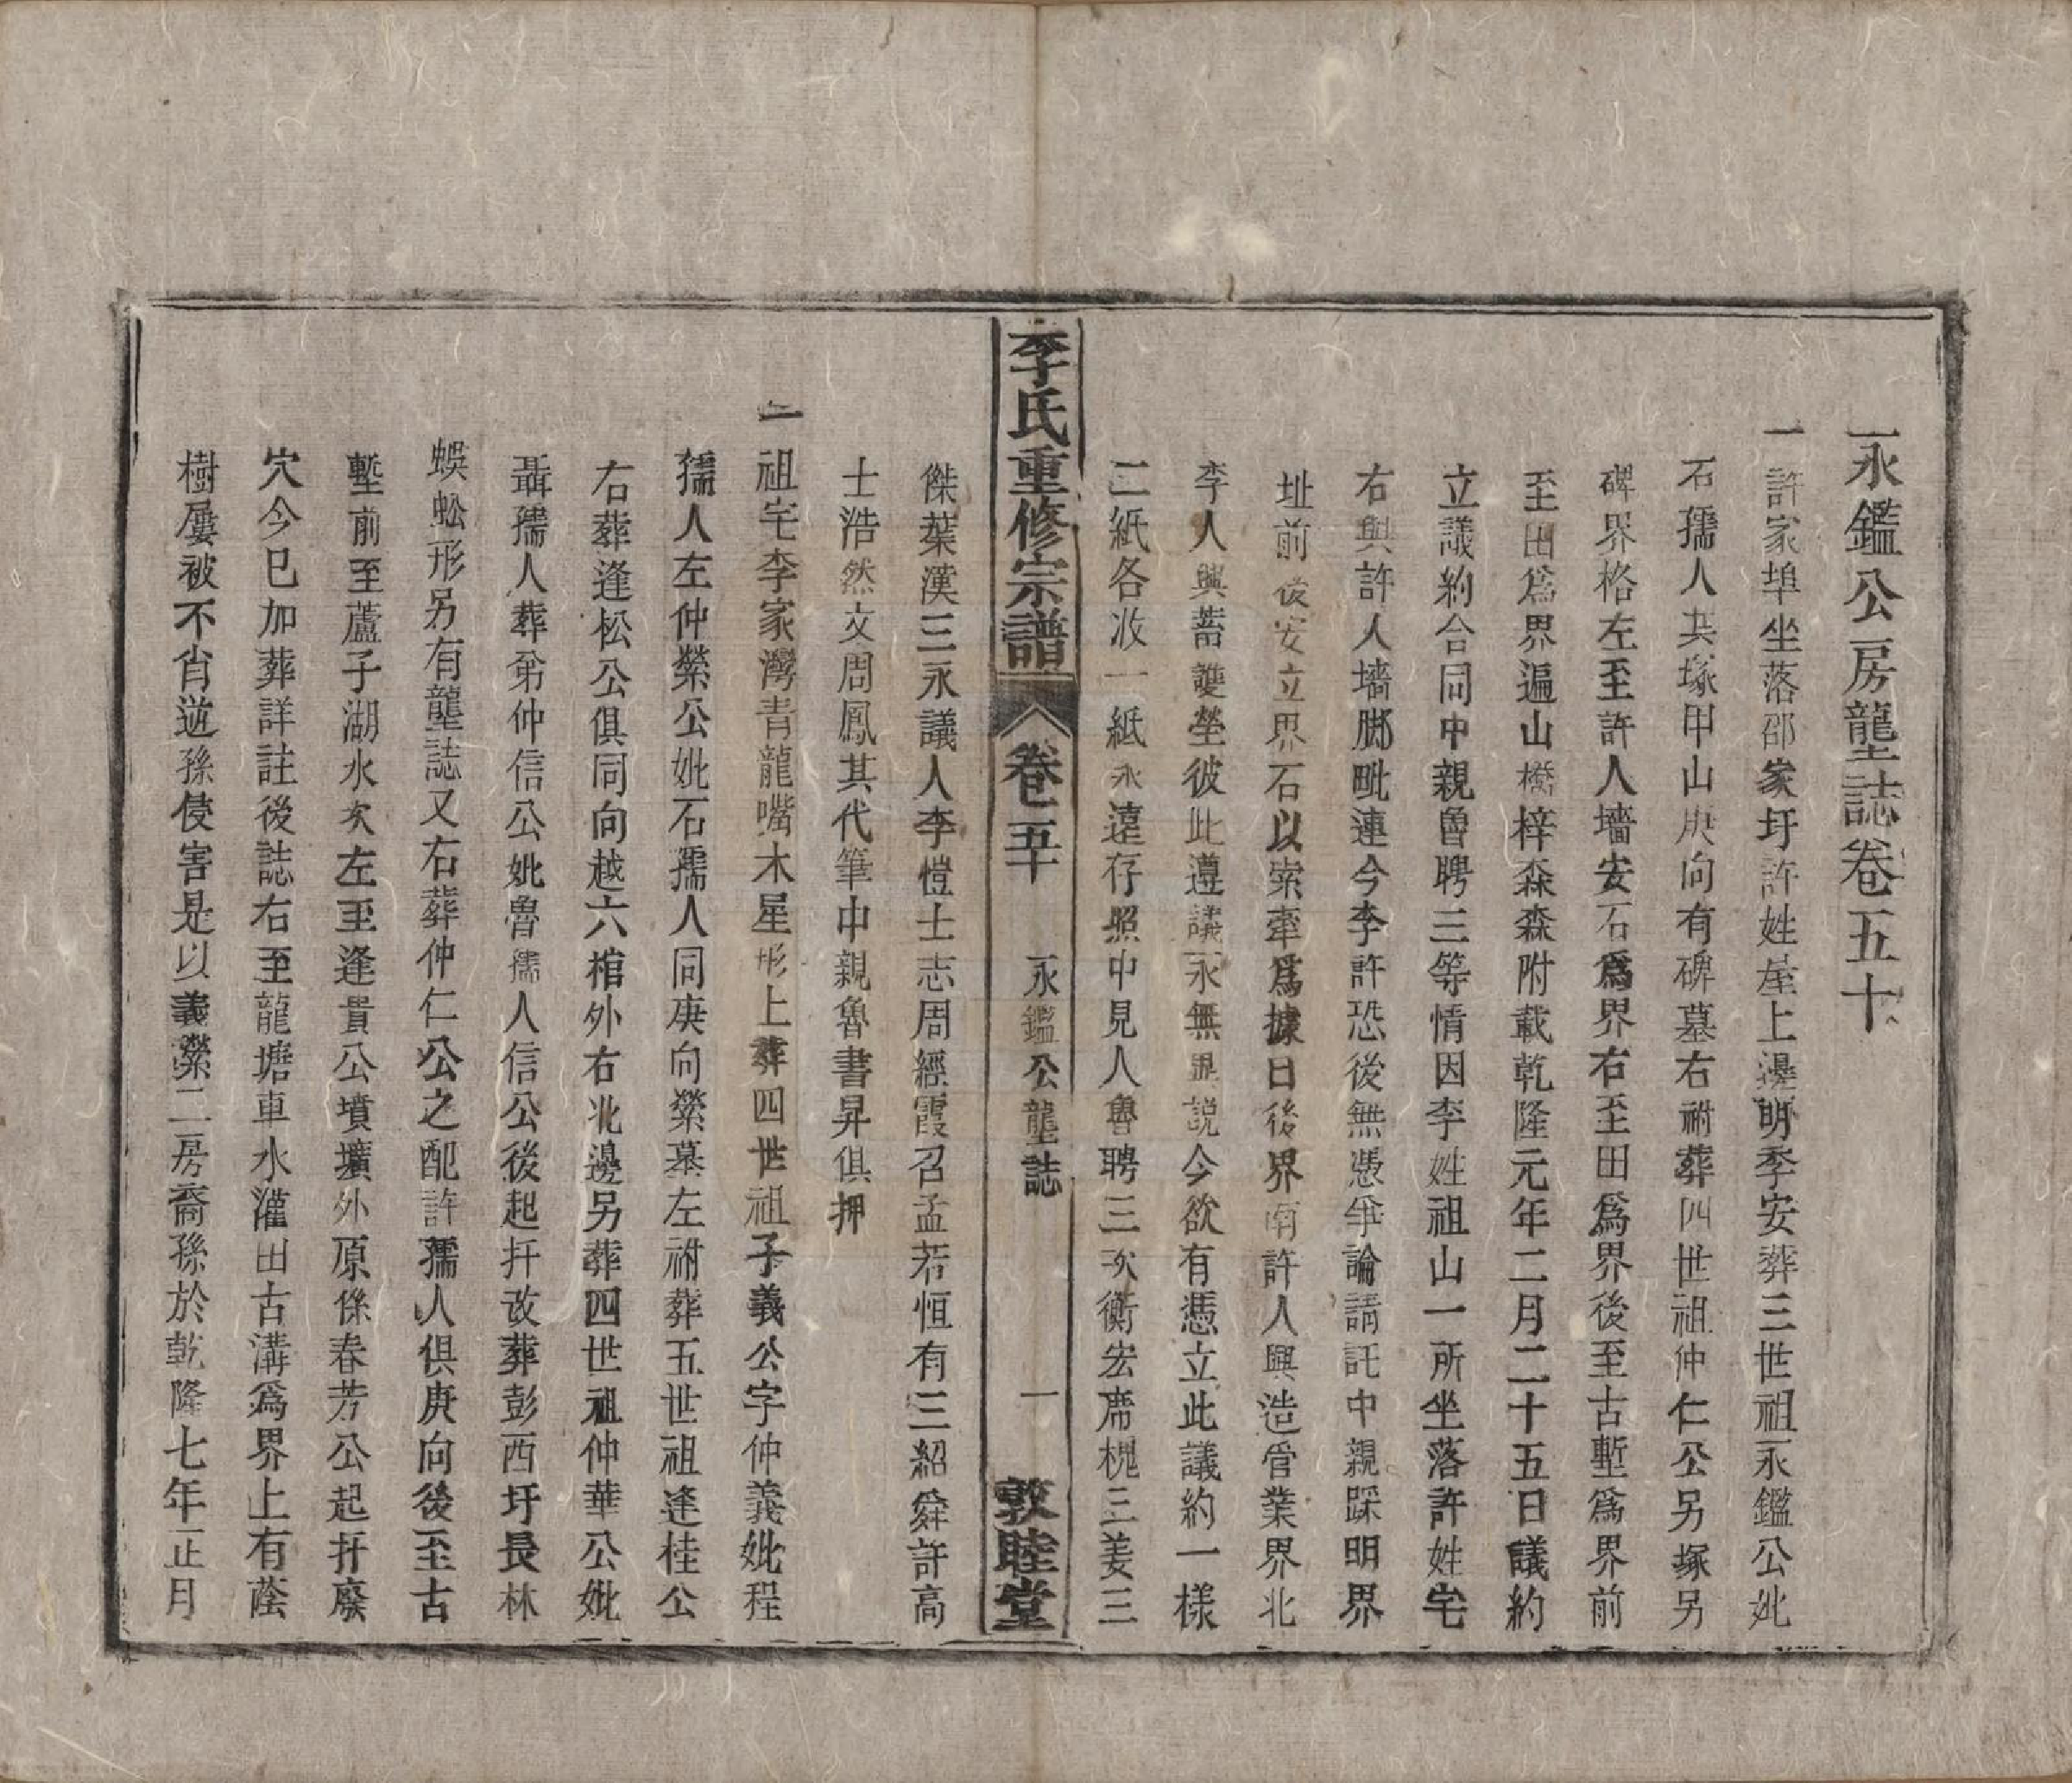 永鑑公房壟誌卷五十
一許家埠坐落邵家圩許姓屋上邊明季安葬三世祖永鑑公妣
石孺人共塚甲山庚向有碑墓右祔葬四世祖仲仁公另塚另
碑界格左至許人墻安石爲界右至田爲界後至古塹爲界前
至田爲界遍山橙梓森森附載乾隆元年二月二十五日議約
立議約合同中親魯聘三等情因李姓祖山一所坐落許姓宅
右與許人墻脚毗連今李許恐後無憑爭論請託中親踩明界
址前後安立界石以索牽爲據日後界南許人興造管業界北
李人興蓄護塋彼此遵議永無異説今欲有憑立此議約一樣
二紙各收一紙永遠存照中見人魯聘三次衡宏席槐三姜三
李氏重修宗譜 卷五十 永鑑公壟誌 一 敦睦堂
傑葉漢三永議人李愷士志周經霞召孟若恒有三紹舜許高
士浩然文周鳳其代筆中親魯書昇俱押
一祖宅李家灣青龍嘴木星形上葬四世祖子義公字仲義妣程
孺人左仲榮公妣石孺人同庚向榮墓左祔葬五世祖逢桂公
右葬逢松公俱同向越六棺外右北邊另葬四世祖仲華公妣
聶孺人葬弟仲信公妣魯孺人信公後起扦改葬彭西圩長林
蜈蚣形另有壟誌又右葬仲仁公之配許孺人俱庚向後至古
塹前至蘆子湖水次左至逢貴公墳壙外原係春芳公起扦廢
穴今巳加葬詳註後誌右至龍塘車水灌田古溝爲界上有蔭
樹屢被不肖逆孫侵害是以義榮二房裔孫於乾隆七年正月